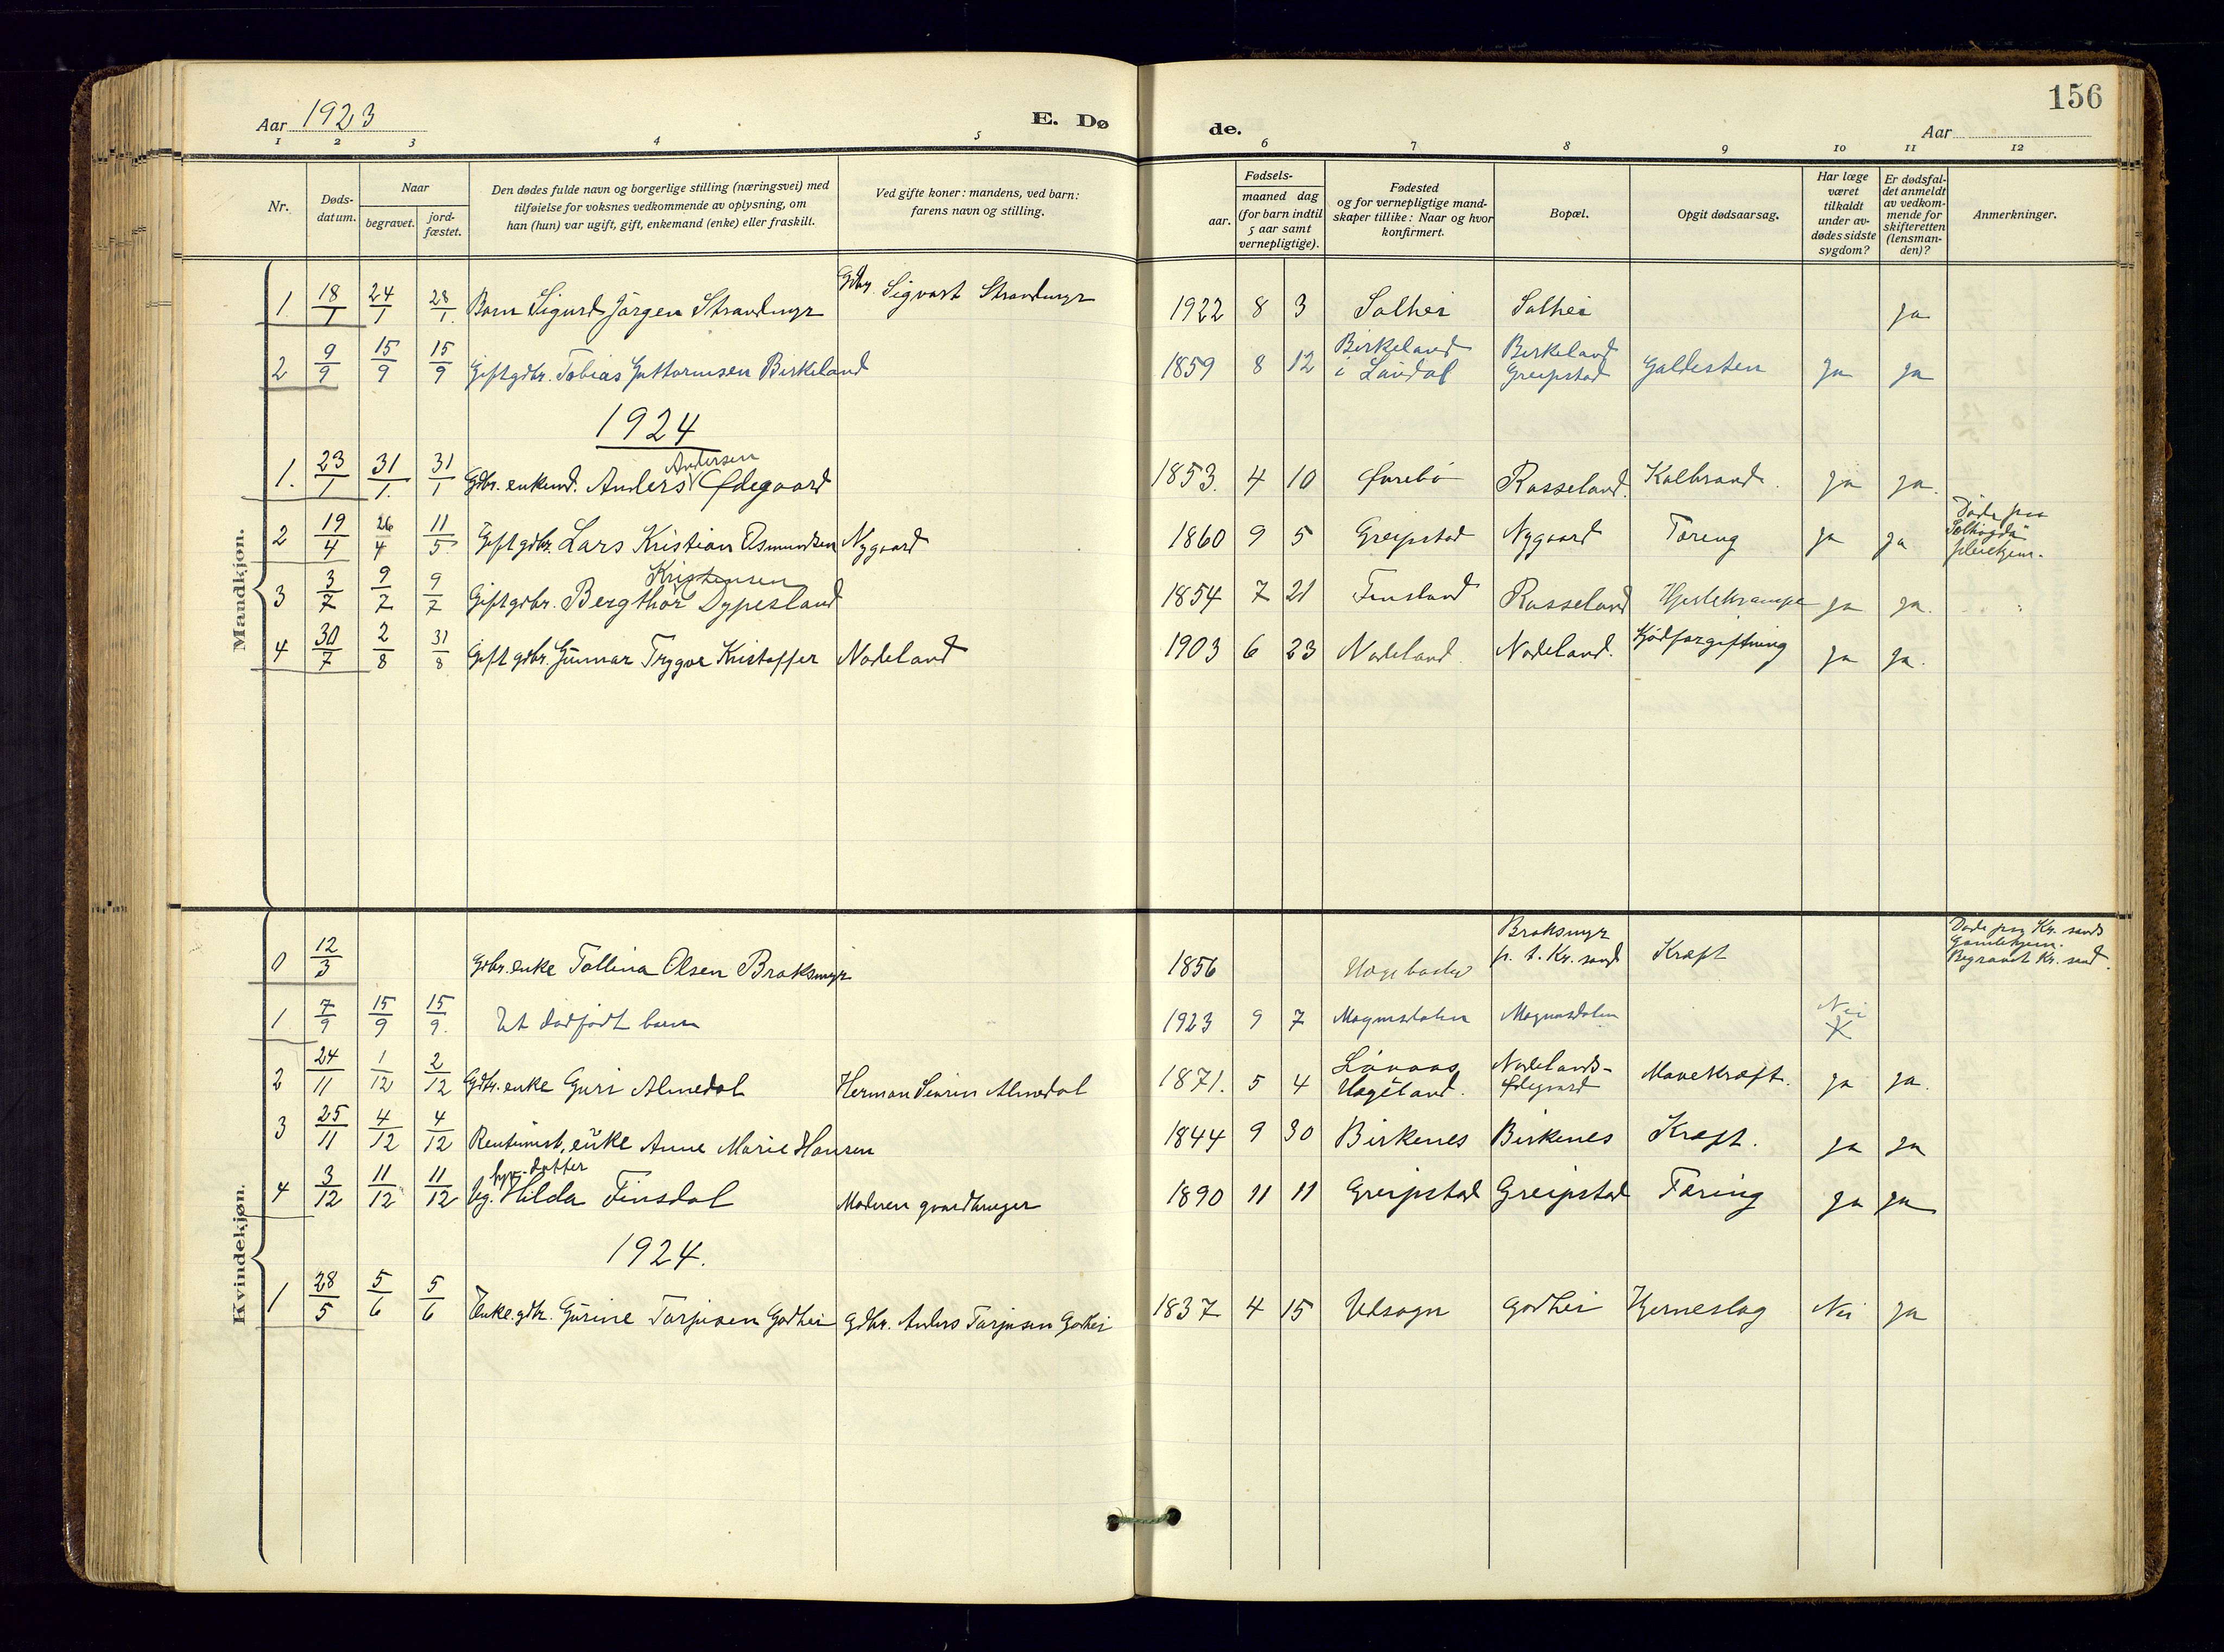 Aar 1923
E. Dø
de.
156
Aar
1 2 3 4 5 6 7 8 9 10 11 12
Nr.
Døds-
datum.
Naar
begravet.
jord-
fæstet.
Den dødes fulde navn og borgerlige stilling (næringsvei) med
tilføielse for voksnes vedkommende av oplysning, om
han (hun) var ugift, gift, enkemand (enke) eller fraskill.
Ved gifte koner: mandens, ved barn:
farens navn og stilling.
Fødsels-
aar.
maaned dag
(for barn indtil
5 aar samt
vernepligtige).
Fødested
og for vernepligtige mand-
skaper tillike: Naar og hvor
konfirmert.
Bopæl.
Opgit dødsaarsag.
Har læge
været
tilkaldt
under av-
dødes sidste
sygdom?
Er dødsfal-
det anmeldt
av vedkom-
mende for
skifteretten
(lensman-
den)?
Anmerkninger.
Mandkjøn.
1 18/1 24/1 28/1. Barn Sigurd Jørgen Strandmyr Gdbr. Sigvart Strandmyr 1922 8 3 Solhei Solhei ja
2 9/9 15/9 15/9 Gift gdbr. Tobias Guttormsen Birkeland 1859 8 12 Birkeland
i Laudal Birkeland
Greipstad Galdesten ja ja
1924
1. 23/1 31/1. 31/1 Gdbr. enkemd. Anders Andersen Ødegaard 1853. 4 10 Øvrebø Rosseland. Kolbrand. ja ja.
2 19/4 26/4 11/5 Gift gdbr. Lars Kristian Osmundsen Nygaard 1860 9 5 Greipstad Nygaard Tæring ja ja Døde paa
Solhøgda
pleiehjem.
3 3/7 9/7 9/7 Gift gdbr. Bergthor Kristensen Dypesland 1854 7 21 Finsland Rosseland Hjertekrampe ja ja.
4 30/7 2/8 31/8 Gift gdbr. Gunnar Trygve Kristoffer Nodeland 1903 6 23 Nodeland. Nodeland. Kjødforgiftning ja ja.
Kvindekjøn.
0 12/3 Gdbr. enke Tollina Olsen Broksmyr 1856 Broksmyr
p. t. Kr. sand Kræft Døde paa Kr. sands
Gamlehjem.
Begravet Kr. sand.
1 7/9 15/9 15/9. Et dødfødt barn 1923 9 7 Magnusdalen Magnusdalen Nei
2 24/11 1/12 2/12 Gdbr. enke Guri Almedal Herman Severin Almedal 1871. 5 4 Løvaas
Hægeland. Nodelands-
Ødegaard Mavekræft. ja ja.
3 25/11 4/12 4/12 Rentenist, enke Anne Marie Hansen 1844 9 30 Birkenes Birkenes Kræft. ja ja
4 3/12 11/12 11/12 Ug. datter Hilda Finsdal Moderen gaardbruger 1890 11 11 Greipstad Greipstad Tæring ja ja
1924.
1 28/5 5/6 5/6 Enke. gdbr. Gurine Torjusen Godhei Gdbr. Anders Torjusen Godhei 1837 4 15 Vedsogn Godhei Hjerneslag Nei ja